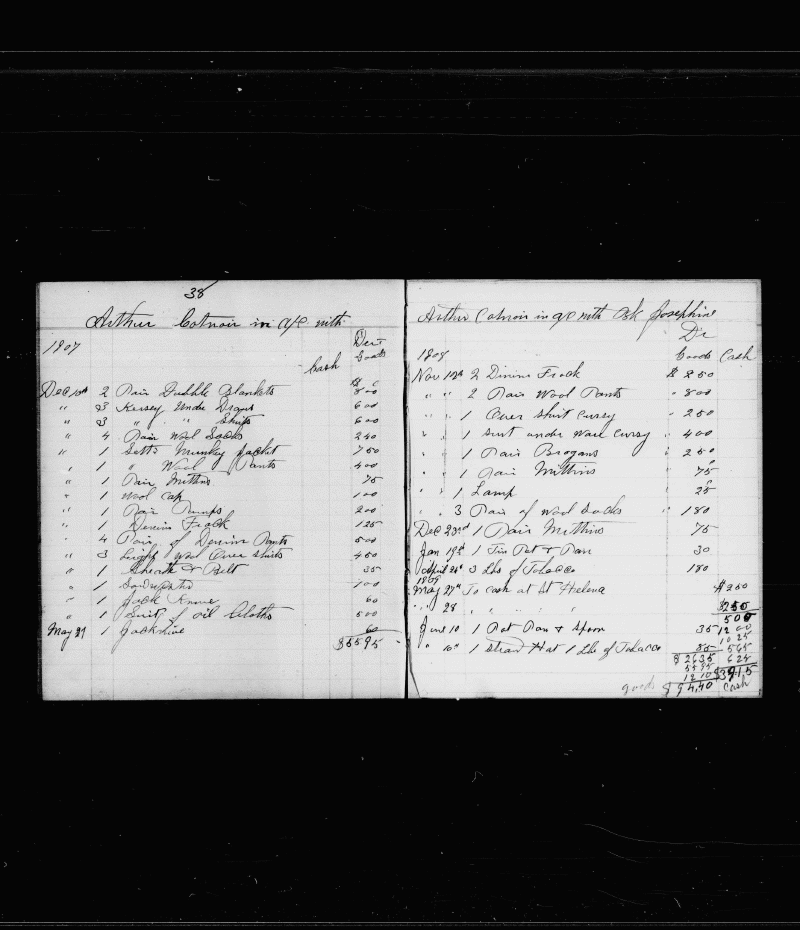 38
Arthur Cotnoir in a/c with
Dr
1907
Cash Goods
Dec 10th 2 Pair Dubble Blankets $ 800
" 3 Kersey Under Drans 600
" 3 " " Shirts 600
" 4 Pair Wool Socks 240
" 1 Setts Munkey Jacket 750
" 1 " Wool Pants 400
" 1 Pair Mittins 75
" 1 Wool Cap 100
" 1 Pair Pumps 200
" 1 Denim Frock 125
" 4 Pair of Denim Pants 500
" 3 Light Wool Over Shirts 450
" 1 Sheath & Belt 35
" 1 100
" 1 Jack Knive 60
" 1 Suit of Oil Cloths 500
May 29 1 Jack Knive 60
$5595
Arthur Cotnoir in a/c with Bk Josephine
Dr
1908 Goods Cash
Nov 12th 2 Dinims Frock $ 250
" " 2 Pair Wool Pants " 800
" " 1 Over Shirt Cursy " 250
" " 1 Suit under Ware Cursy " 400
" " 1 Pair Brogans " 250
" " 1 Pair Mittins 75
" " 1 Lamp 25
" " 3 Pair of Wool Socks " 180
Dec 23rd 1 Pair Mittins 75
Jan 19th 1 Tin Pot & Pan 30
April 28th 3 Lbs of Tobacco 180
1909
May 27th To Cash at St Helena $250
" " 28 " " " " $250
500
June 10 1 Pot Pan & Spoon 35 1200
1025
" 10th 1 Straw Hat 1 Lbs of Tobacco 85 565
$ 2635 625
5595
1210 $3915
goods $94.40 Cash